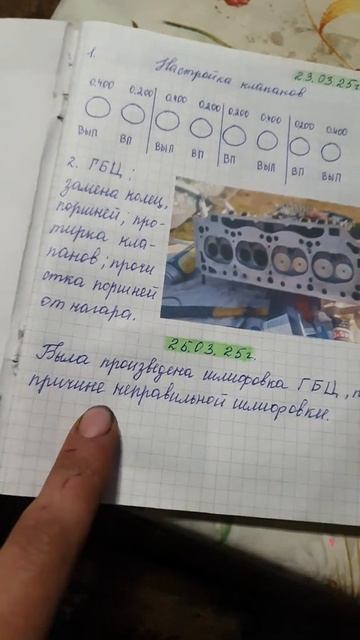 1.
Настройка клапанов
23.03.25г.
0.400 0.200 0.400 0.200 0.200 0.400 0.200 0.400
ВЫП ВП ВЫП ВП ВП ВЫП ВП ВЫП
2. ГБЦ:
замена колец,
поршней; про-
тирка кла-
панов; прочи
стка поршней
от нагара.
25.03.25г.
Была произведена шлифовка ГБЦ,
причине неправильной шлифовки.